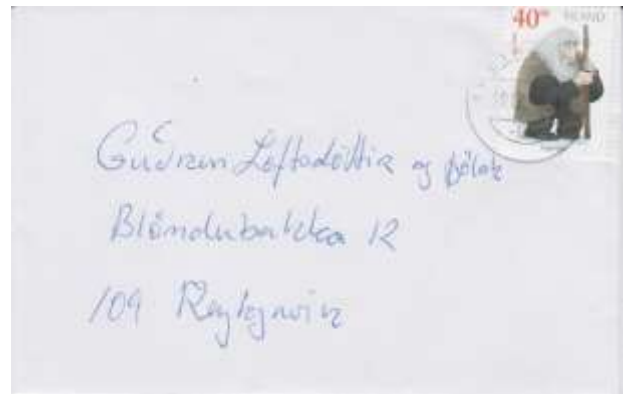 40⁰⁰ ÍSLAND
Guðrún Loftsdóttir og fjölsk
Blöndubakka 12
109 Reykjavík